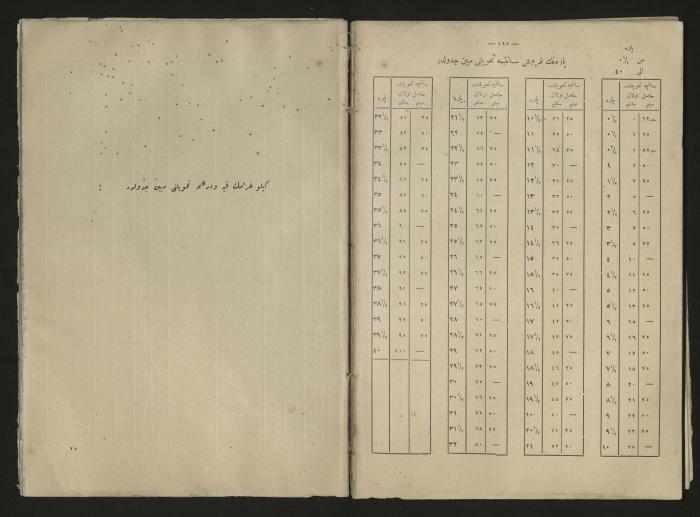 — ١٩٢ —
پاره
من ٠¼
الی ٤٠
پاره‌نك غروش سانتیمه تحویلنی مبین جدولدر
سانتیمه تحویلنده
حاصل اولان
پاره سانتیم میلیم
٠¼ ٠ ٦٢,٥٠
٠½ ١ ٢٥
٠¾ ١ ٨٧,٥٠
١ ٢ ٥٠
١½ ٣ ٧٥
٢ ٥ —
٢½ ٦ ٢٥
٣ ٧ ٥٠
٣½ ٨ ٧٥
٤ ١٠ —
٤½ ١١ ٢٥
٥ ١٢ ٥٠
٥½ ١٣ ٧٥
٦ ١٥ —
٦½ ١٦ ٢٥
٧ ١٧ ٥٠
٧½ ١٨ ٧٥
٨ ٢٠ —
٨½ ٢١ ٢٥
٩ ٢٢ ٥٠
٩½ ٢٣ ٧٥
١٠ ٢٥ —
سانتیمه تحویلنده
حاصل اولان
پاره سانتیم میلیم
١٠½ ٢٦ ٢٥
١١ ٢٧ ٥٠
١١½ ٢٨ ٧٥
١٢ ٣٠ —
١٢½ ٣١ ٢٥
١٣ ٣٢ ٥٠
١٣½ ٣٣ ٧٥
١٤ ٣٥ —
١٤½ ٣٦ ٢٥
١٥ ٣٧ ٥٠
١٥½ ٣٨ ٧٥
١٦ ٤٠ —
١٦½ ٤١ ٢٥
١٧ ٤٢ ٥٠
١٧½ ٤٣ ٧٥
١٨ ٤٥ —
١٨½ ٤٦ ٢٥
١٩ ٤٧ ٥٠
١٩½ ٤٨ ٧٥
٢٠ ٥٠ —
٢٠½ ٥١ ٢٥
٢١ ٥٢ ٥٠
سانتیمه تحویلنده
حاصل اولان
پاره سانتیم میلیم
٢١½ ٥٣ ٧٥
٢٢ ٥٥ —
٢٢½ ٥٦ ٢٥
٢٣ ٥٧ ٥٠
٢٣½ ٥٨ ٧٥
٢٤ ٦٠ —
٢٤½ ٦١ ٢٥
٢٥ ٦٢ ٥٠
٢٥½ ٦٣ ٧٥
٢٦ ٦٥ —
٢٦½ ٦٦ ٢٥
٢٧ ٦٧ ٥٠
٢٧½ ٦٨ ٧٥
٢٨ ٧٠ —
٢٨½ ٧١ ٢٥
٢٩ ٧٢ ٥٠
٢٩½ ٧٣ ٧٥
٣٠ ٧٥ —
٣٠½ ٧٦ ٢٥
٣١ ٧٧ ٥٠
٣١½ ٧٨ ٧٥
٣٢ ٨٠ —
سانتیمه تحویلنده
حاصل اولان
پاره سانتیم میلیم
٣٢½ ٨١ ٢٥
٣٣ ٨٢ ٥٠
٣٣½ ٨٣ ٧٥
٣٤ ٨٥ —
٣٤½ ٨٦ ٢٥
٣٥ ٨٧ ٥٠
٣٥½ ٨٨ ٧٥
٣٦ ٩٠ —
٣٦½ ٩١ ٢٥
٣٧ ٩٢ ٥٠
٣٧½ ٩٣ ٧٥
٣٨ ٩٥ —
٣٨½ ٩٦ ٢٥
٣٩ ٩٧ ٥٠
٣٩½ ٩٨ ٧٥
٤٠ ١٠٠ —
كیلو غرامك قیه ودرهم تحویلنی مبین جدولدر
٢٥